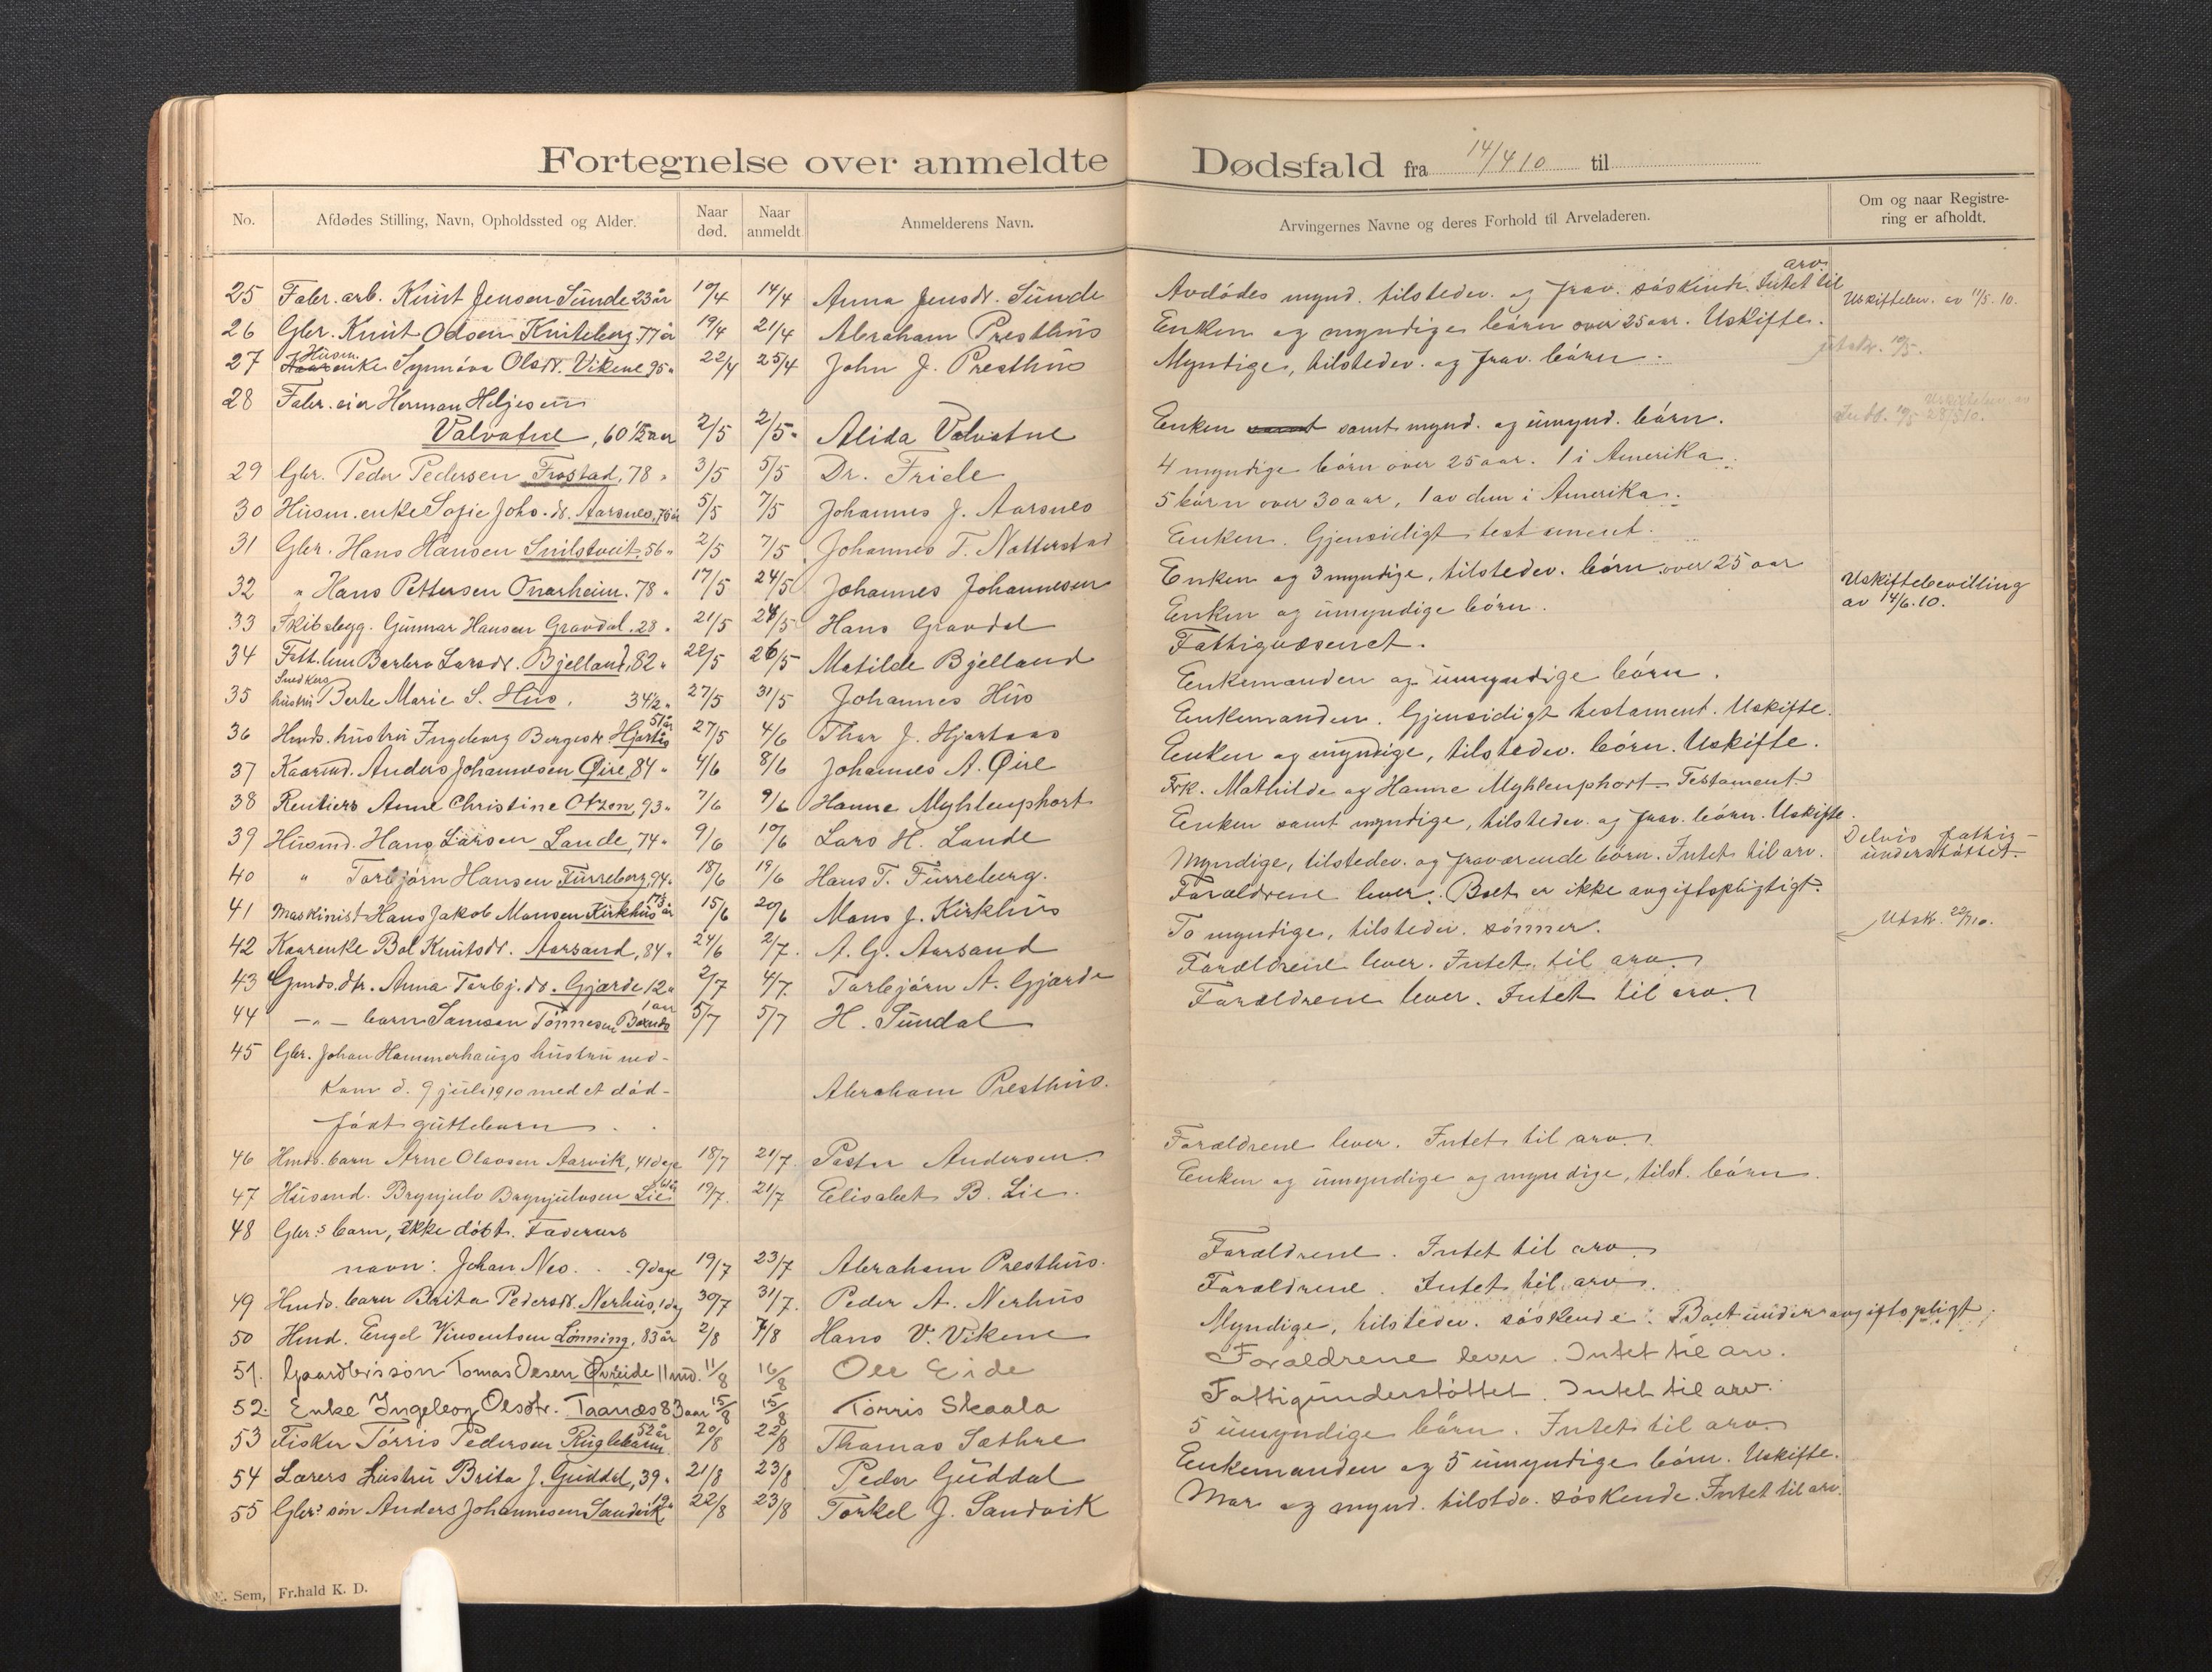 Fortegnelse over anmeldte Dødsfald fra 14/4 10 til
No. Afdødes Stilling, Navn, Opholdssted og Alder. Naar død. Naar anmeldt Anmelderens Navn. Arvingernes Navne og deres Forhold til Arveladeren. Om og naar Registrering er afholdt.
25 Fabr. arb. Knut Jensen Sunde 23 år 10/4 14/4 Anna Jensdr. Sunde Avdødes mynd. tilstedev. og frav. søskende. Intet til arv. Uskiftebev. av 11/5. 10.
26 Gbr. Knut Odsen Kniteberg 77 år 19/4 21/4 Abraham Presthus Enken og myndige børn over 25 aar. Uskifte.
27 Husm. enke Synnøva Olsdr. Vikene 95 " 22/4 25/4 John J. Presthus Myndige, tilstedev. og frav. børn.
28 Fabr. eier Herman Heljesen
Valvatne, 60 1/2 aar 2/5 2/5 Alida Valvatne Enken samt mynd. og umynd. børn.
29 Gbr. Peder Pedersen Frostad, 78 " 3/5 5/5 Dr. Friele 4 myndige børn over 25 aar. 1 i Amerika.
30 Husm. enke Sofie Johs. dr. Aarsnes, 76 år 5/5 7/5 Johannes J. Aarsnes 5 børn over 30 aar, 1 av dem i Amerika.
31 Gbr. Hans Hansen Snilstveit, 56 " 2/5 7/5 Johannes T. Natterstad Enken. Gjensidigt testament.
32 " Hans Pettersen Onarheim. 78 " 17/5 24/5 Johannes Johannesen Enken og 3 myndige, tilstedev. børn over 25 aar
33 Skibsbygg. Gunnar Hansen Gravdal. 28 " 21/5 24/5 Hans Gravdal Enken og umyndige børn. Uskiftebevilling av 14/6. 10.
34 Fatt. lem Barbro Larsdr. Bjelland, 82 " 22/5 26/5 Matilde Bjelland Fattigvæsenet.
35 Snedkers hustru Berte Marie S. Hus, 34 1/2 " 27/5 31/5 Johannes Hus Enkemanden og umyndige børn.
36 Hmds. hustru Ingeborg Bergesdr. Hjartås 51 år 27/5 4/6 Thor J. Hjartaas Enkemanden. Gjensidigt testament. Uskifte.
37 Kaarmd. Anders Johannesen Øire, 84 " 4/6 8/6 Johannes A. Øire Enken og myndige, tilstedev. børn. Uskifte.
38 Rentiers Anne Christine Otzen, 93 " 7/6 9/6 Hanne Myhlenphort Frk. Mathilde og Hanne Myhlenphort Testament
39 Husmd. Hans Larsen Lande, 74 " 9/6 10/6 Lars H. Lande Enken samt myndige, tilstedev. og frav. børn. Uskifte.
40 " Torbjørn Hansen Furreberg, 94 " 18/6 19/6 Hans T. Furreberg. Myndige, tilstedev. og fraværende børn. Intet til arv. Delvis fattigunderstøttet.
41 Maskinist Hans Jakob Monsen Kirkhus år 15/6 20/6 Mons J. Kirkhus Forældrene lever. Boet er ikke avgiftspligtigt.
42 Kaarenke Bol Knutsdr. Aarsand, 84 " 24/6 2/7. A. G. Aarsand To myndige, tilstedev. sønner. Utsk. 22/7 10.
43 Gmds. dtr. Anna Torbj. dr. Gjærde 12 " 2/7 4/7. Torbjørn A. Gjærde Forældrene lever. Intet til arv.
44 — " — barn Samson Tønnesen 1 aar 5/7 5/7 H. Sundal Forældrene lever. Intet til arv.
45 Gbr. Johan Hammerhaugs hustru ned-
kom d. 9 juli 1910 med et død- Abraham Presthus.
født guttebarn.
46 Hmds. barn Arne Olavsen Aarvik, 41 dage 18/7 21/7. Pastor Andersen Forældrene lever. Intet til arv.
47 Husmd. Brynjulv Brynjulvsen Lie 19/7. 21/7 Elisabet B. Lie. Enken og umyndige og myndige, tilst. børn.
48 Gbr.s barn, ikke døbt. Faderens
navn: Johan Nes. 9 dage 19/7 23/7 Abraham Presthus. Forældrene. Intet til arv.
49 Hmds. barn Brita Pedersdr. Nerhus, 1 dag 30/7 31/7. Peder A. Nerhus Forældrene. Intet til arv.
50 Hmd. Engel Vinsentsen Lønning, 83 år 2/8 4/8 Hans V. Vikene Myndige, tilstedev. søskende. Boet under avgiftspligt.
51. Gaardbr.sön Tomas Olsen Øvreide 11 md. 11/8 16/8 Ole Eide Forældrene lever. Intet til arv.
52. Enke Ingeborg Olsdtr. Taanæs 83 aar 15/8 15/8 Törris Skaala Fattigunderstøttet. Intet til arv.
53 Fisker Tørris Pedersen 52 år 20/8 22/8 Thomas Sæthre 5 umyndige børn. Intet til arv.
54 Lærers hustru Brita J. Guddal, 39 " 21/8 23/8 Peder Guddal Enkemanden og 5 umyndige børn. Uskifte.
55 Gbr.s søn Anders Johannesen Sandvik, 22/8 23/8 Torkel J. Sandvik Mor og mynd. tilstdv. søskende. Intet til arv.
E. Sem, Fr.hald K. D.